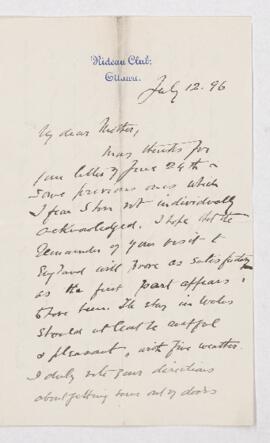 Rideau Club,
Ottawa.
July 12. 96
My dear Mother,
Many thanks for
your letter of June 24th &
some previous ones which
I fear I have not individually
acknowledged. I hope that the
remainder of your visit to
England will prove as satisfactory
as the first part appears to
have been. The stay in Wales
should at least be restful
& pleasant, with fine weather.
I duly note your directions
about getting out of doors